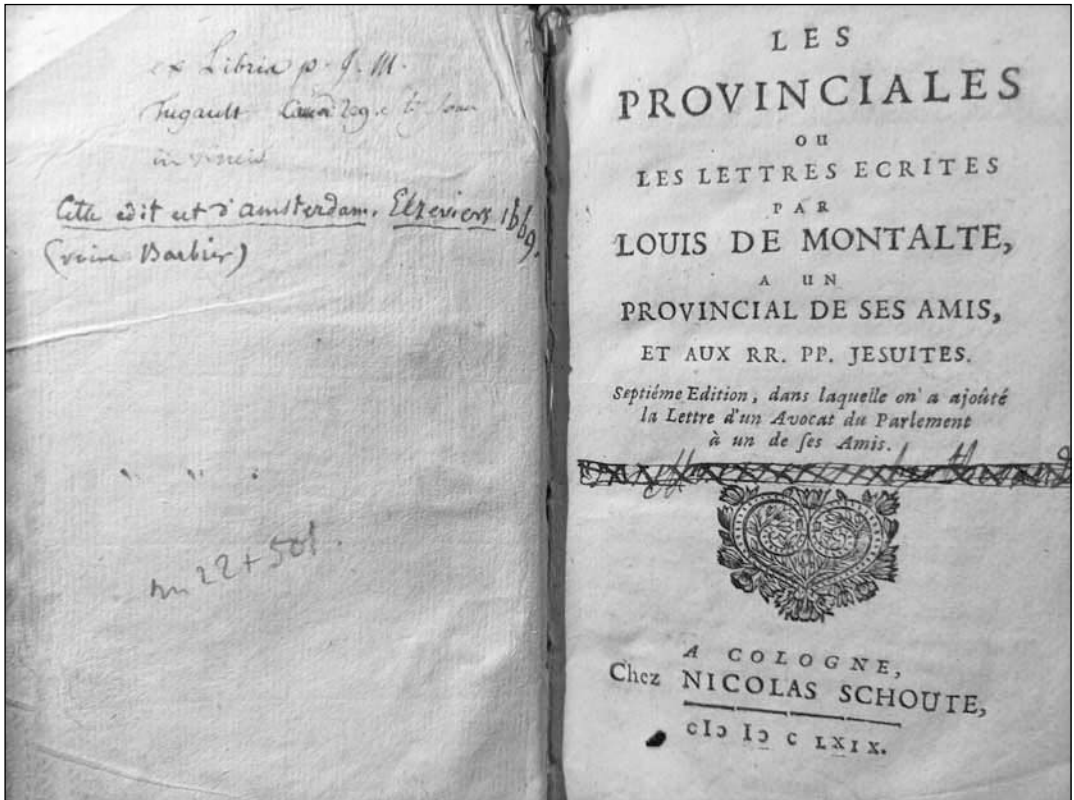 ex Libris p. J. M.
in
Cette edit est d'amsterdam. Elzeviers 1669.
(voir Barbier)
22 + 501.
LES
PROVINCIALES
OU
LES LETTRES ECRITES
PAR
LOUIS DE MONTALTE,
A UN
PROVINCIAL DE SES AMIS,
ET AUX RR. PP. JESUITES.
Septiéme Edition, dans laquelle on a ajoûté
la Lettre d'un Avocat du Parlement
à un de ſes Amis.
A COLOGNE,
Chez NICOLAS SCHOUTE,
cIɔ Iɔ C LXIX.